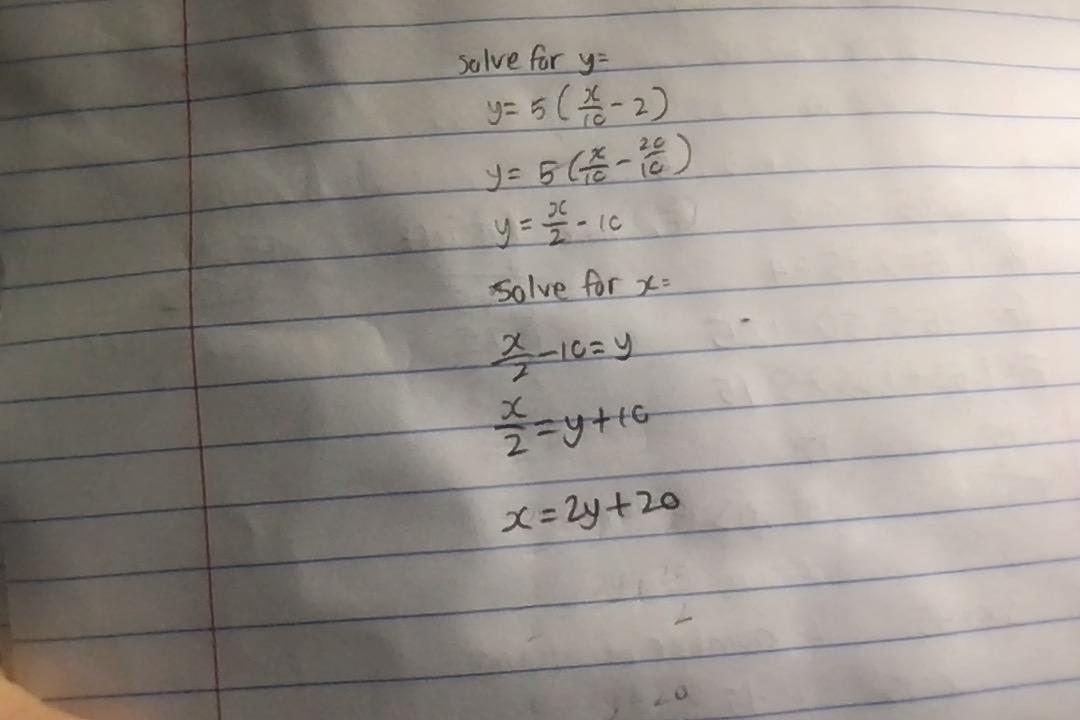 solve for y=
y= 5 ( x/10 - 2 )
y= 5 ( x/10 - 20/10 )
y = x/2 - 10
Solve for x=
x/2 - 10 = y
x/2 = y + 10
x = 2y + 20